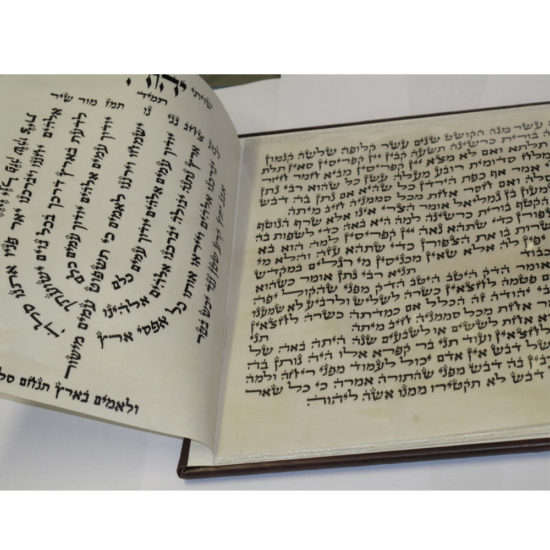 שויתי יהוה
תמיד
מזמור שיר
יודוך עמים אלהים יודוך עמים כלם
ישמחו וירננו לאמים כי תשפוט עמים מישור
ארץ נתנה יבולה יברכנו אלהים אלהינו
יברכנו אלהים וייראו אותו כל אפסי ארץ
לדעת בארץ דרכך בכל גוים ישועתך
אלהים יחננו ויברכנו יאר פניו אתנו סלה
ולאמים בארץ תנחם סלה
עשר מנה הקושט שנים עשר קלופה שלשה קנמון
בורית כרשינה תשעה קבין יין קפריסין סאין תלת
תלתא ואם לא מצא יין קפריסין מביא חמר חיור
מלח סדומית רובע מעלה עשן כל שהוא רבי נתן
אומר אף כפת הירדן כל שהיא אם נתן בה דבש
ואם חסר אחת מכל סממניה חייב מיתה
בן גמליאל אומר הצרי אינו אלא שרף הנוטף
הקטף בורית כרשינה למה היא באה כדי לשפות בה
הצפורן כדי שתהא נאה יין קפריסין למה הוא בא
לשרות בו את הצפורן כדי שתהא עזה והלא מי
יפין לה אלא שאין מכניסין מי רגלים במקדש
הכבוד תניא רבי נתן אומר
אומר הדק היטב היטב הדק מפני שהקול יפה
כשרה לשליש ולרביע לא שמענו
רבי יהודה זה הכלל אם כמדתה כשרה לחצאין
אחת מכל סממניה חייב מיתה תני
אחת לששים או לשבעים שנה היתה באה של
לחצאין ועוד תני בר קפרא אלו היה נותן בה
של דבש אין אדם יכול לעמוד מפני ריחה ולמה
אין מערבין בה דבש מפני שהתורה אמרה כי כל שאר
דבש לא תקטירו ממנו אשה ליהוה׃